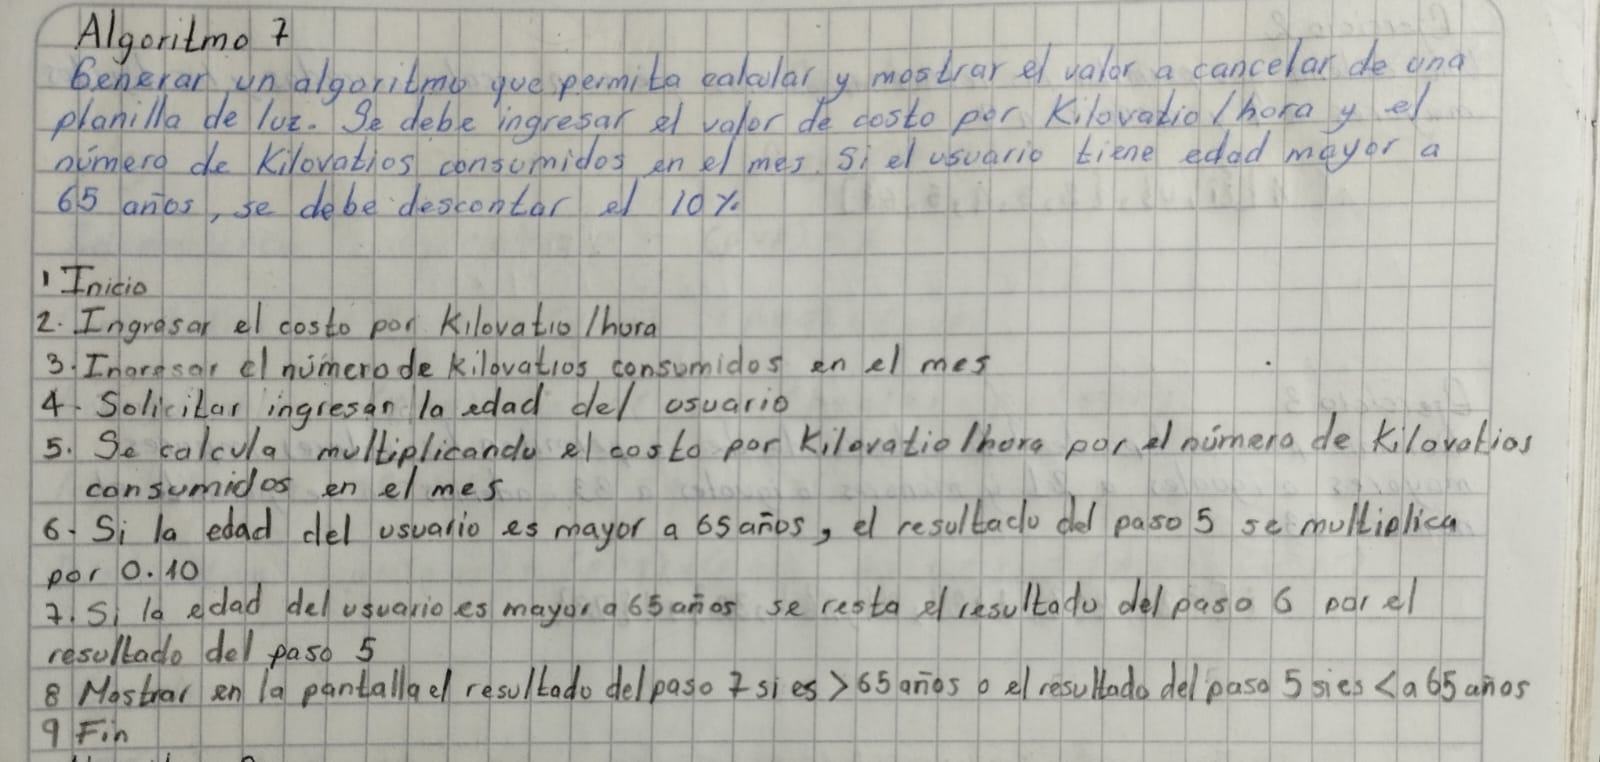 Algoritmo 7
Generar un algoritmo que permita calcular y mostrar el valor a cancelar de una
planilla de luz. Se debe ingresar el valor de costo por Kilovatio/hora y el
número de Kilovatios consumidos en el mes. Si el usuario tiene edad mayor a
65 años, se debe descontar el 10%
1 Inicio
2. Ingresar el costo por Kilovatio/hora
3. Ingresar el número de Kilovatios consumidos en el mes
4. Solicitar ingresar la edad del usuario
5. Se calcula multiplicando el costo por Kilovatio/hora por el número de Kilovatios
consumidos en el mes
6. Si la edad del usuario es mayor a 65 años, el resultado del paso 5 se multiplica
por 0.10
7. Si la edad del usuario es mayor a 65 años se resta el resultado del paso 6 por el
resultado del paso 5
8 Mostrar en la pantalla el resultado del paso 7 si es > 65 años o el resultado del paso 5 si es < a 65 años
9 Fin